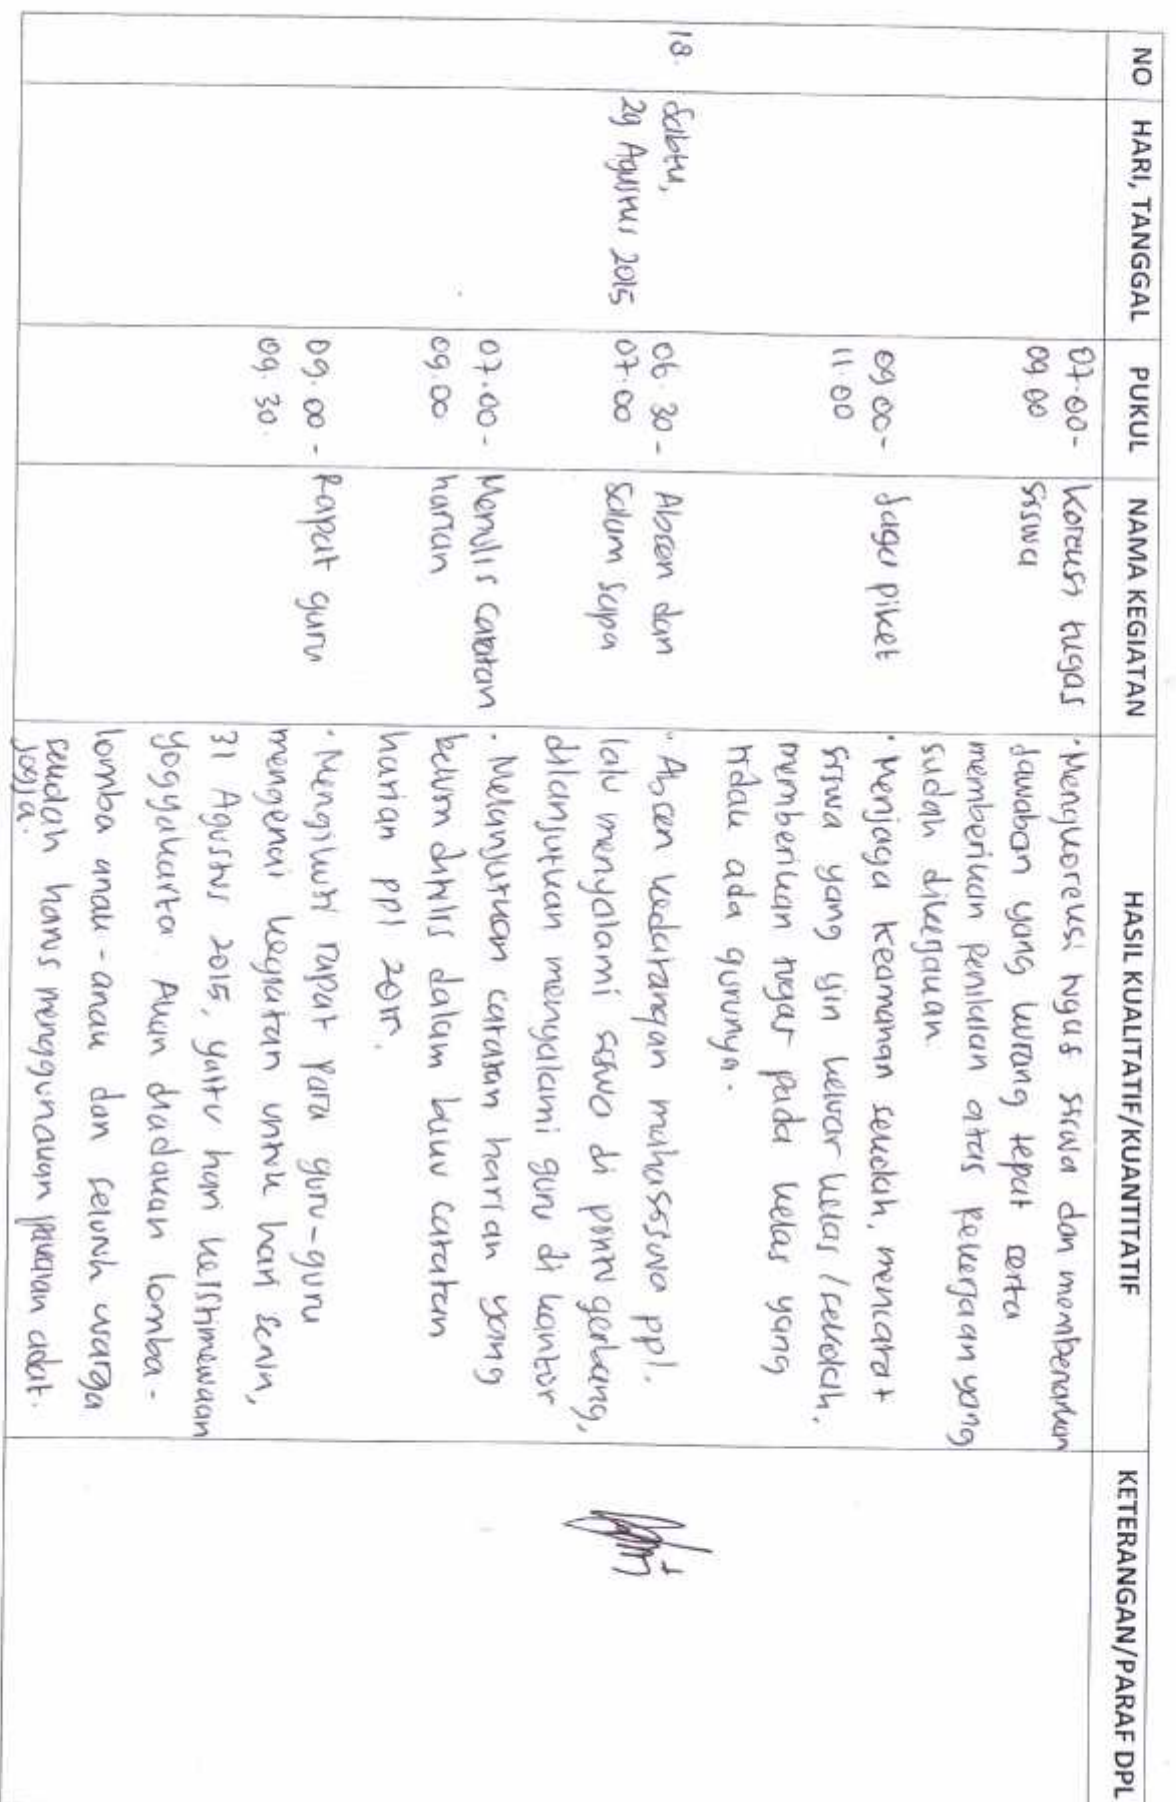 NO HARI, TANGGAL PUKUL NAMA KEGIATAN HASIL KUALITATIF/KUANTITATIF KETERANGAN/PARAF DPL
07.00 - Koreksi tugas · Mengkoreksi tugas siswa dan membenarkan
09.00 siswa jawaban yang kurang tepat serta
memberikan penilaian atas pekerjaan yang
sudah dikerjakan
09.00 - Jaga piket · Menjaga keamanan sekolah, mencatat
11.00 siswa yang ijin keluar kelas / sekolah,
memberikan tugas pada kelas yang
tidak ada gurunya.
18. Sabtu, 06.30 - Absen dan · Absen kedatangan mahasiswa ppl.
29 Agustus 2015 07.00 salam sapa lalu menyalami siswa di pintu gerbang,
dilanjutkan menyalami guru di kantor
07.00 - Menulis catatan · Melanjutkan catatan harian yang
09.00 harian belum ditulis dalam buku catatan
harian ppl 2015.
09.00 - Rapat guru · Mengikuti rapat para guru-guru
09.30. mengenai kegiatan untuk hari senin,
31 Agustus 2015, yaitu hari keistimewaan
yogyakarta. Akan diadakan lomba-
lomba anak-anak dan seluruh warga
sekolah harus menggunakan pakaian adat.
jogja.